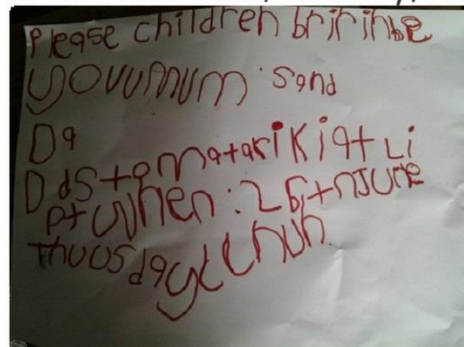 Please children bririnbe
yovumum sand
Da
D ds to matariki at Li
pt when: 26th June
Thuosday Lchuh